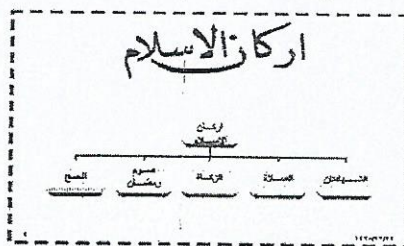 اركان الاسلام
اركان
الاسلام
الشهادتان
الصلاة
الزكاة
صوم
رمضان
الحج